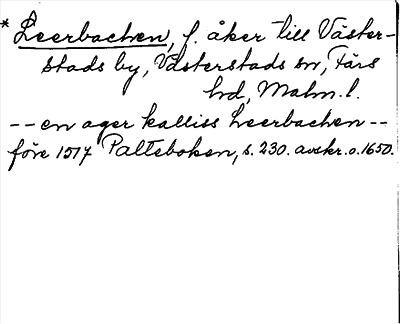 * Leerbacken, f. åker till Väster-
stads by, Västerstads sn, Färs
hd, Malm. l.
-- en ager kalliss Leerbacken --
före 1517 Palteboken, s. 230. avskr. o. 1650.